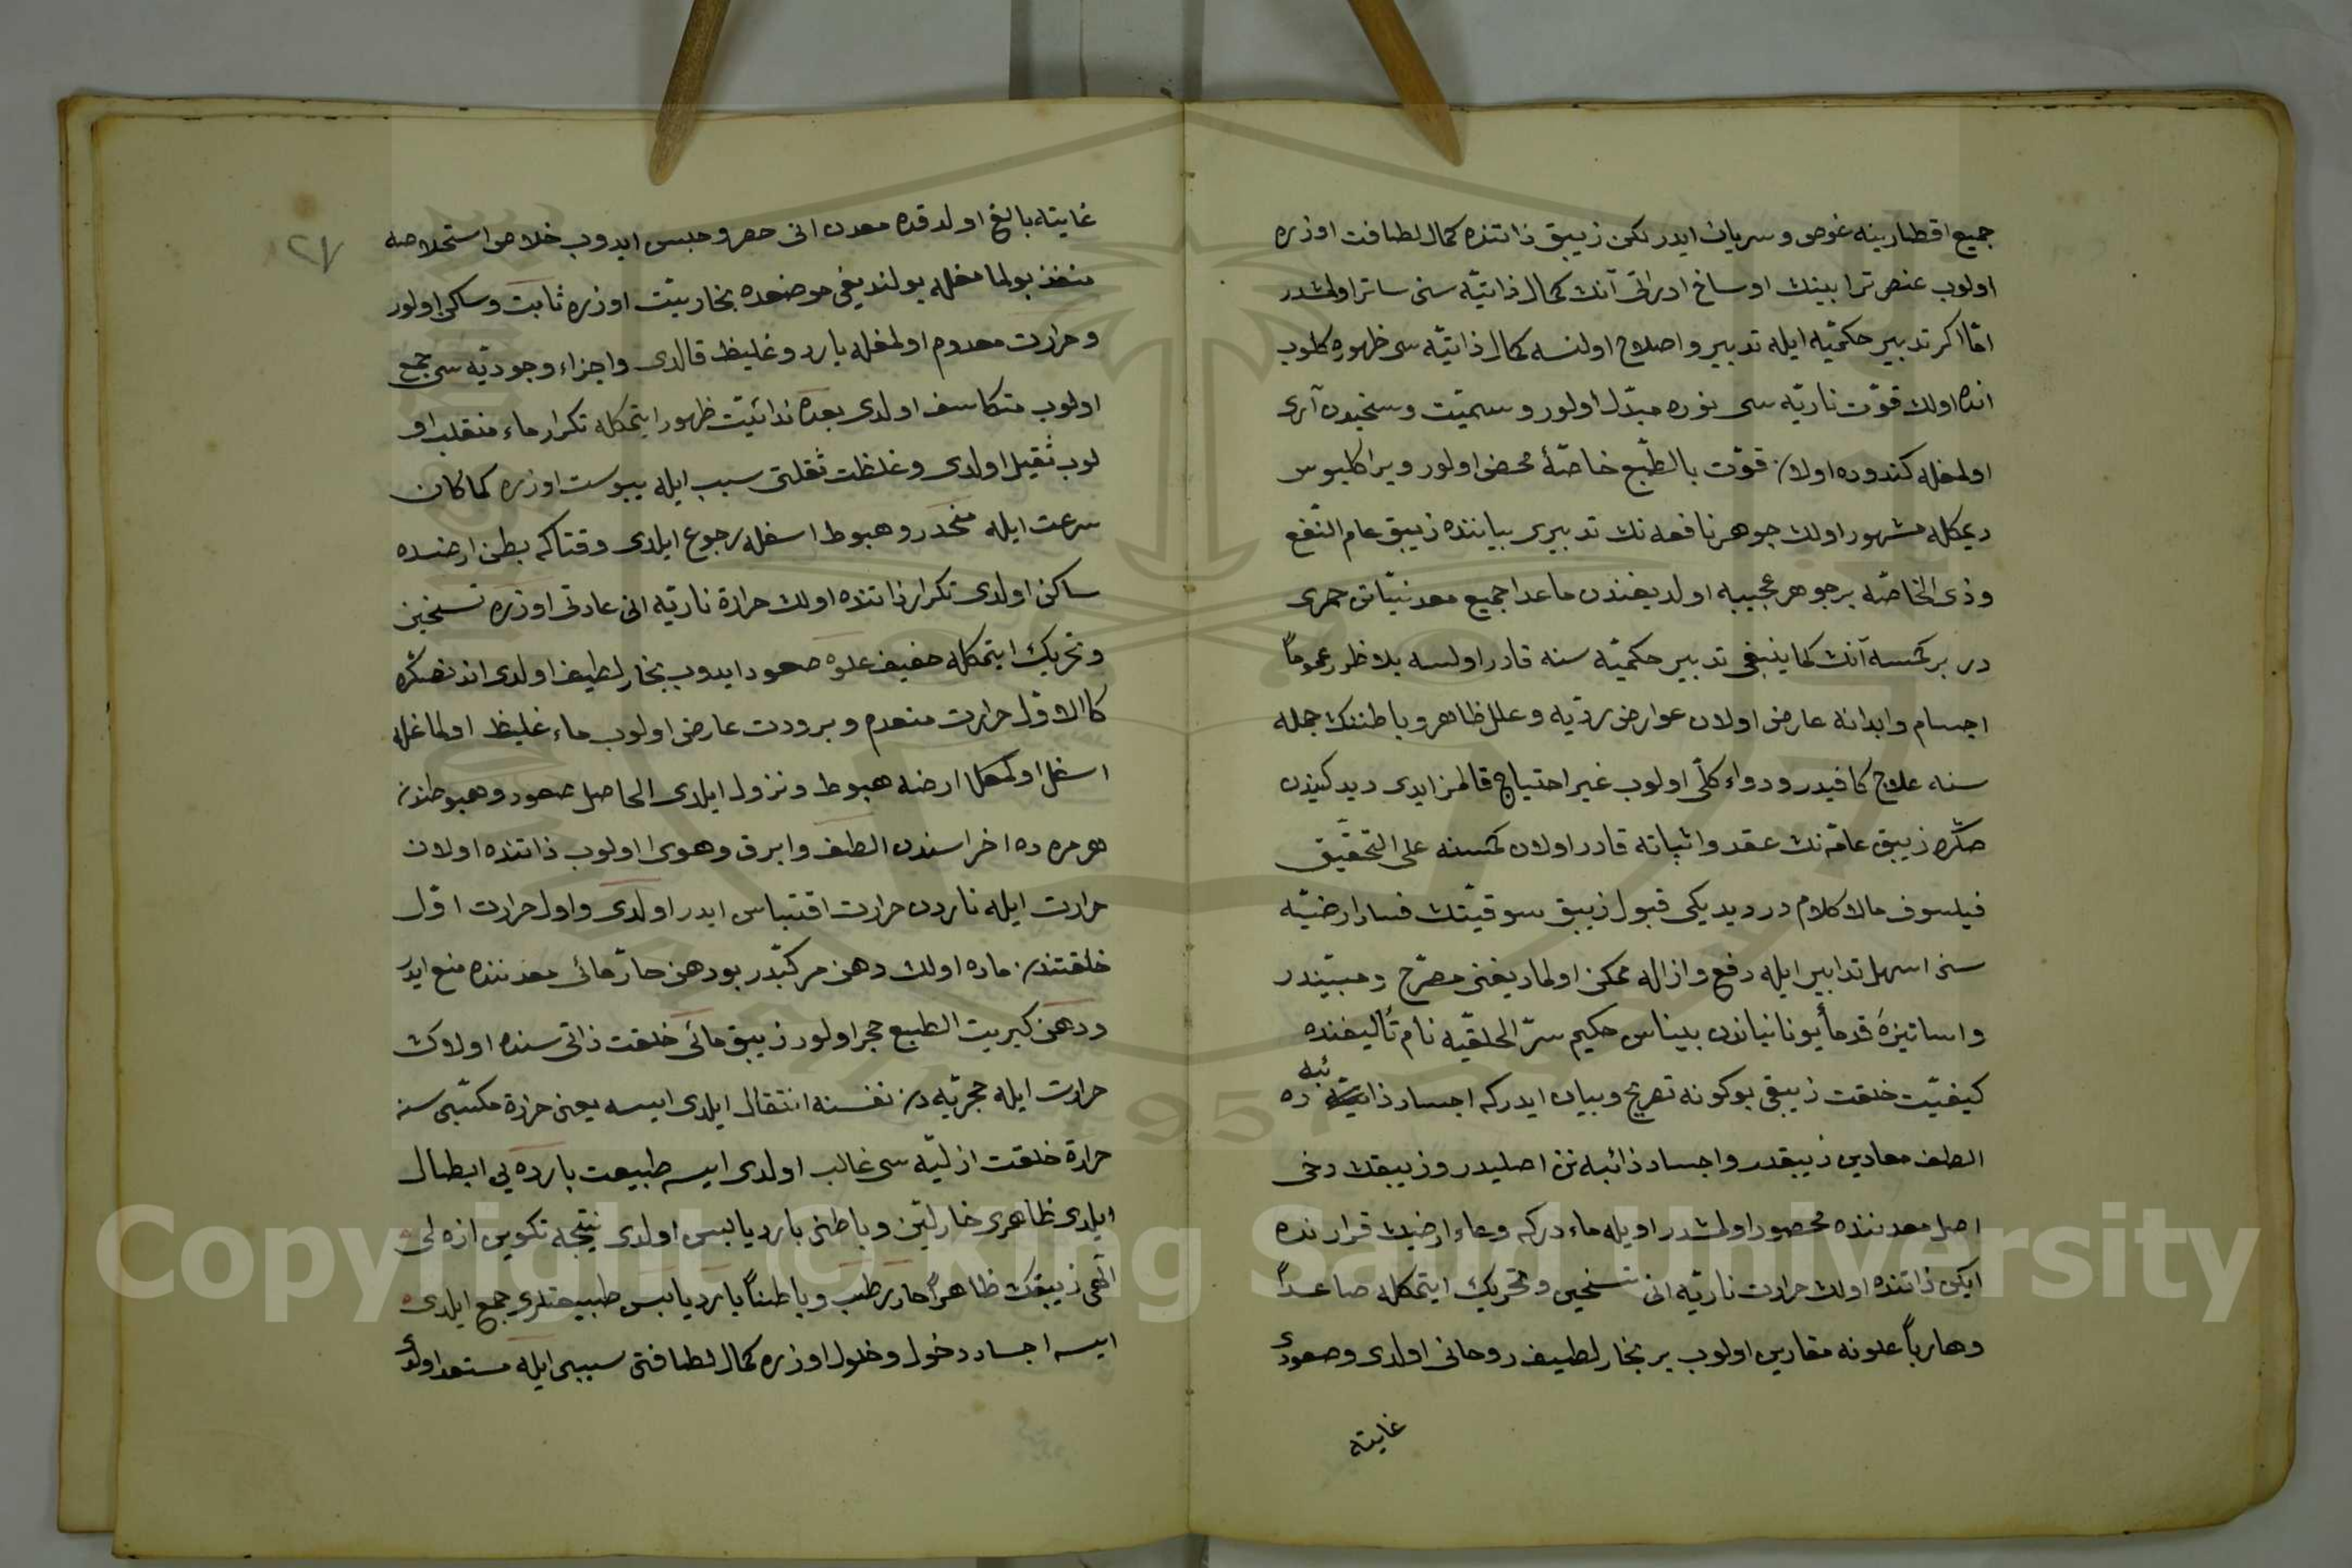 جميع اقطارينه غوص و سريان ايدر لكن زيبق ذاتنده كمال لطافت اوزره
اولوب عنصر ترابينك اوساخ ادراتى آنك كمال ذاتيّه سنى ساتر اولمشدر
امّا اكر تدبير حكميّه ايله تدبير و اصلاح اولنسه كمال ذاتيّه سى ظهوره كلوب
انده اولان قوّت ناريّه سى نوره مبدّل اولور و سميّت و سخيدن آرى
اولمغله كندوده اولان قوّت بالطّبع خاصّهٔ محض اولور و براكليوس
ديمكله مشهور اولان جوهر نافعه نك تدبيرى بياننده زيبق عام النّفع
وذى الخاصّه بر جوهر عجيبه اولديغندن ماعدا جميع معدنيّاتن جمرى
در بر كمسه آنك كما ينبغى تدبير حكميّه سنه قادر اولسه بلا ظرر عموماً
اجسام و ابدانه عارض اولان عوارض رديّه و علل ظاهر و باطننك جمله
سنه علاج كافيدر و دواء كلّى اولوب غير احتياج قالمز ايدى ديدكيندن
صكره زيبق عامّه نك عقد و اثباتنه قادر اولان كمسنه على التحقيق
فيلسوف مالا كلام در ديديكى قبول زيبق سوقيّتك فساد ارضيّه
سنى اسهل تدابير ايله دفع و ازاله ممكن اولماديغنى مصرّح و مبيّندر
و اساتيزهٔ قدماٴ يونانياندن بليناس حكيم سرّ الخلقيّه نام تأليفنده
كيفيّت خلقت زيبقى بوكونه تصريح و بيان ايدركه اجساد ذائبه ده
الطف معادين زيبقدر و اجساد ذائبه نن اصليدر و زيبقك دخى
اصل معدننده محصور اولمشدر اويله ماء دركه وعاء ارضيك قرارنده
ايكن ذاتنده اولان حرارت ناريّه انى تسخين و تحريك ايتمكله صاعداً
و هارباً علونه مقارين اولوب بر بخار لطيف روحانى اولدى و صعودى
غايته
٢٧
غايته بالغ اولدقده معدن انى حصر و حبس ايدوب خلاص استخلاصه
منفذ بولمامغله بولنديغى موضعده بخاريّت اوزره ثابت و ساكن اولور
و حرارت معدوم اولمغله بارد و غليظ قالدى و اجزاء وجوديّه سى جمع
اولوب متكاسف اولدى بعده ندائيّت ظهور ايتمكله تكرار ماء منقلب او
لوب ثقيل اولدى و غلظت ثقلتى سبب ايله يبوست اوزره كما كان
سرعت ايله منحدر و هبوط اسفله رجوع ايلدى وقتاكه بطن ارضده
ساكن اولدى تكرار ذاتنده اولان حرارة ناريّه انى عادتى اوزره تسخين
و تحريك ايتمكله خفيف علوه صعود ايدوب بخار لطيف اولدى اندنصكره
كالاوّل حرارت منعدم و برودت عارض اولوب ماء غليظ اولماغله
اسفل اولمحل ارضه هبوط و نزول ايلدى الحاصل صعود و هبوطندن
هر مره ده اخراسندن الطف و ابرق و هوى اولوب ذاتنده اولان
حرارت ايله ناردن حرارت اقتباس ايدر اولدى و اول حرارت اوّل
خلقتندن ماده اولان دهن مركّبدر بو دهن حارّ مائى معدننده منع ايدر
و دهن كبريت الطبع حجر اولور زيبق مائى خلقت ذاتى سنده اولان
حرارت ايله حجريّه دن نفسنه انتقال ايلدى ايسه يعنى حرارة مكتسبى سنه
حرارة خلقت ازليّه سى غالب اولدى ايسه طبيعت بارده يى ابطال
ايلدى ظاهرى حار ليّن و باطنى بارد يابس اولدى نتيجه تكوين ازه لى
الهى زيبقك ظاهراً حار رطب و باطناً بارد يابس طبيعتلرى جمع ايلدى
ايسه اجساد دخول و خلول اوزره كمال لطافتى سببى ايله مستعد اولدى